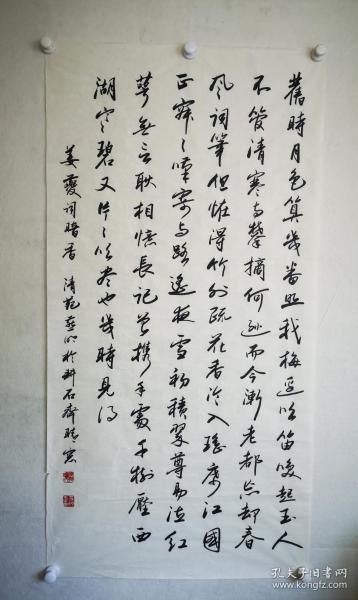 舊時月色算幾番照我梅邊吹笛喚起玉人
不管清寒與攀摘何遜而今漸老都忘却春
風詞筆但怪得竹外疏花香冷入瑤席江國
正寂々嘆寄與路遙夜雪初積翠尊易泣紅
萼無言耿相憶長記曾攜手處千樹壓西
湖寒碧又片々吹盡也幾時見得
姜夔詞暗香
孔夫子旧书网
www.kongfz.com